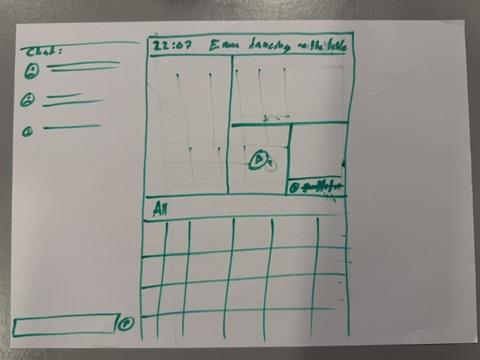 Chat:
22:07 Emma dancing on the table
All